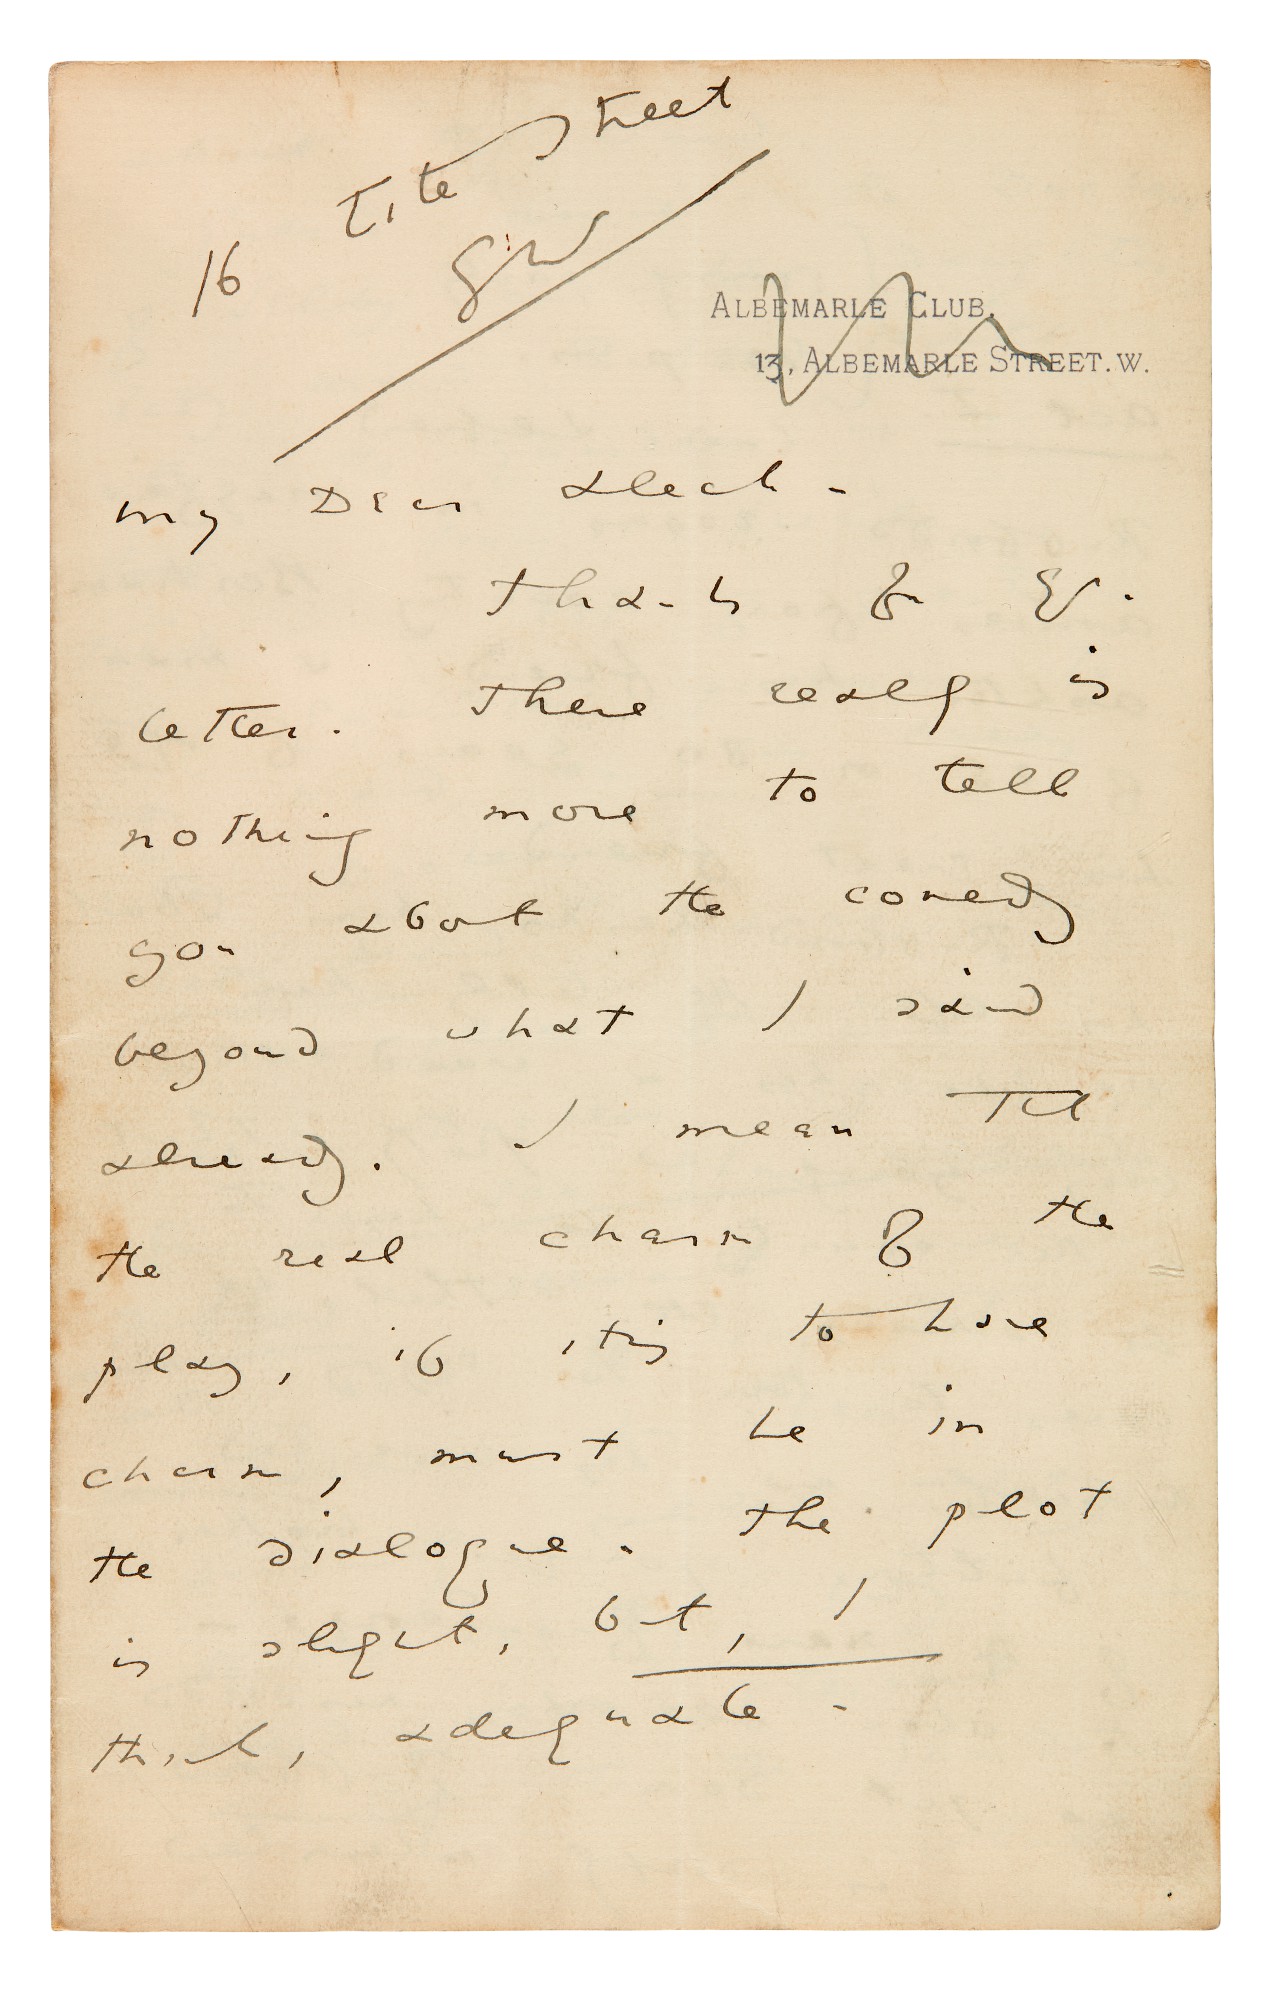 16 Tite Street
S.W
ALBEMARLE CLUB.
13, ALBEMARLE STREET. W.
My Dear Aleck -
Thanks for yr.
letter. There really is
nothing more to tell
you about the comedy
beyond what I said
already. I mean that
the real charm of the
play, if it is to have
charm, must be in
the dialogue. The plot
is slight, but, I
think, adequate -